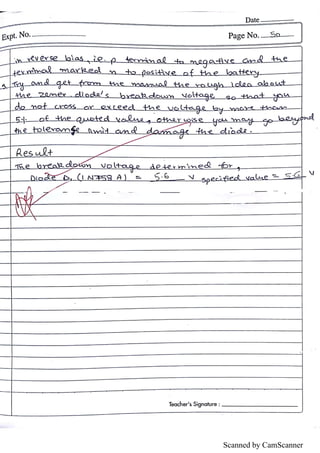 Date
Expt. No.
Page No. 50
in reverse bias, i.e. p terminal to negative and the
terminal marked n to positive of the battery
5 Try and get from the manual the rough idea about
the zener diode's breakdown voltage so that you
do not cross or exceed the voltage by more than
5% of the quoted value, otherwise you may go beyond
the tolerance limit and damage the diode.
Result
The breakdown voltage determined for,
Diode D1 (1N758A) = 5.6 V specified value = 5.6 V
Teacher's Signature :
Scanned by CamScanner